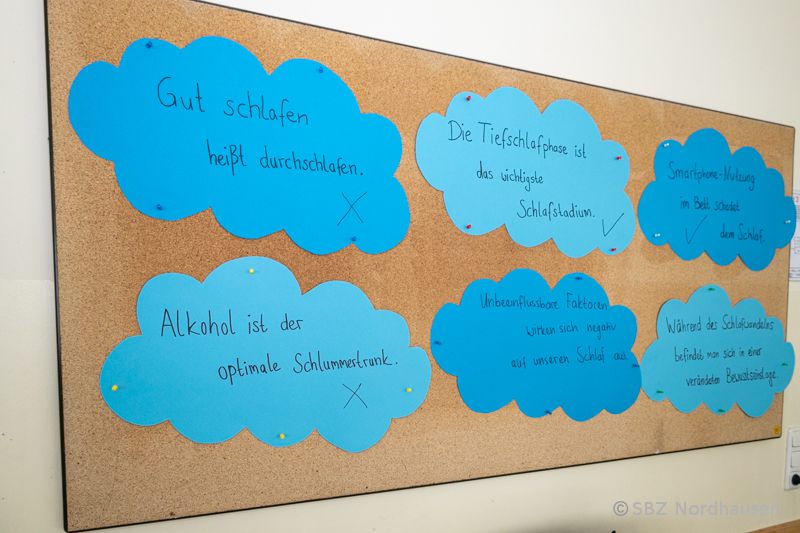 Gut schlafen
heißt durchschlafen.
X
Die Tiefschlafphase ist
das wichtigste
Schlafstadium.
✓
Smartphone-Nutzung
im Bett schadet
✓ dem Schlaf.
Alkohol ist der
optimale Schlummertrunk.
X
Unbeeinflussbare Faktoren
wirken sich negativ
auf unseren Schlaf aus.
Während des Schlafwandelns
befindet man sich in einer
veränderten Bewusstseinslage.
©SBZ Nordhausen